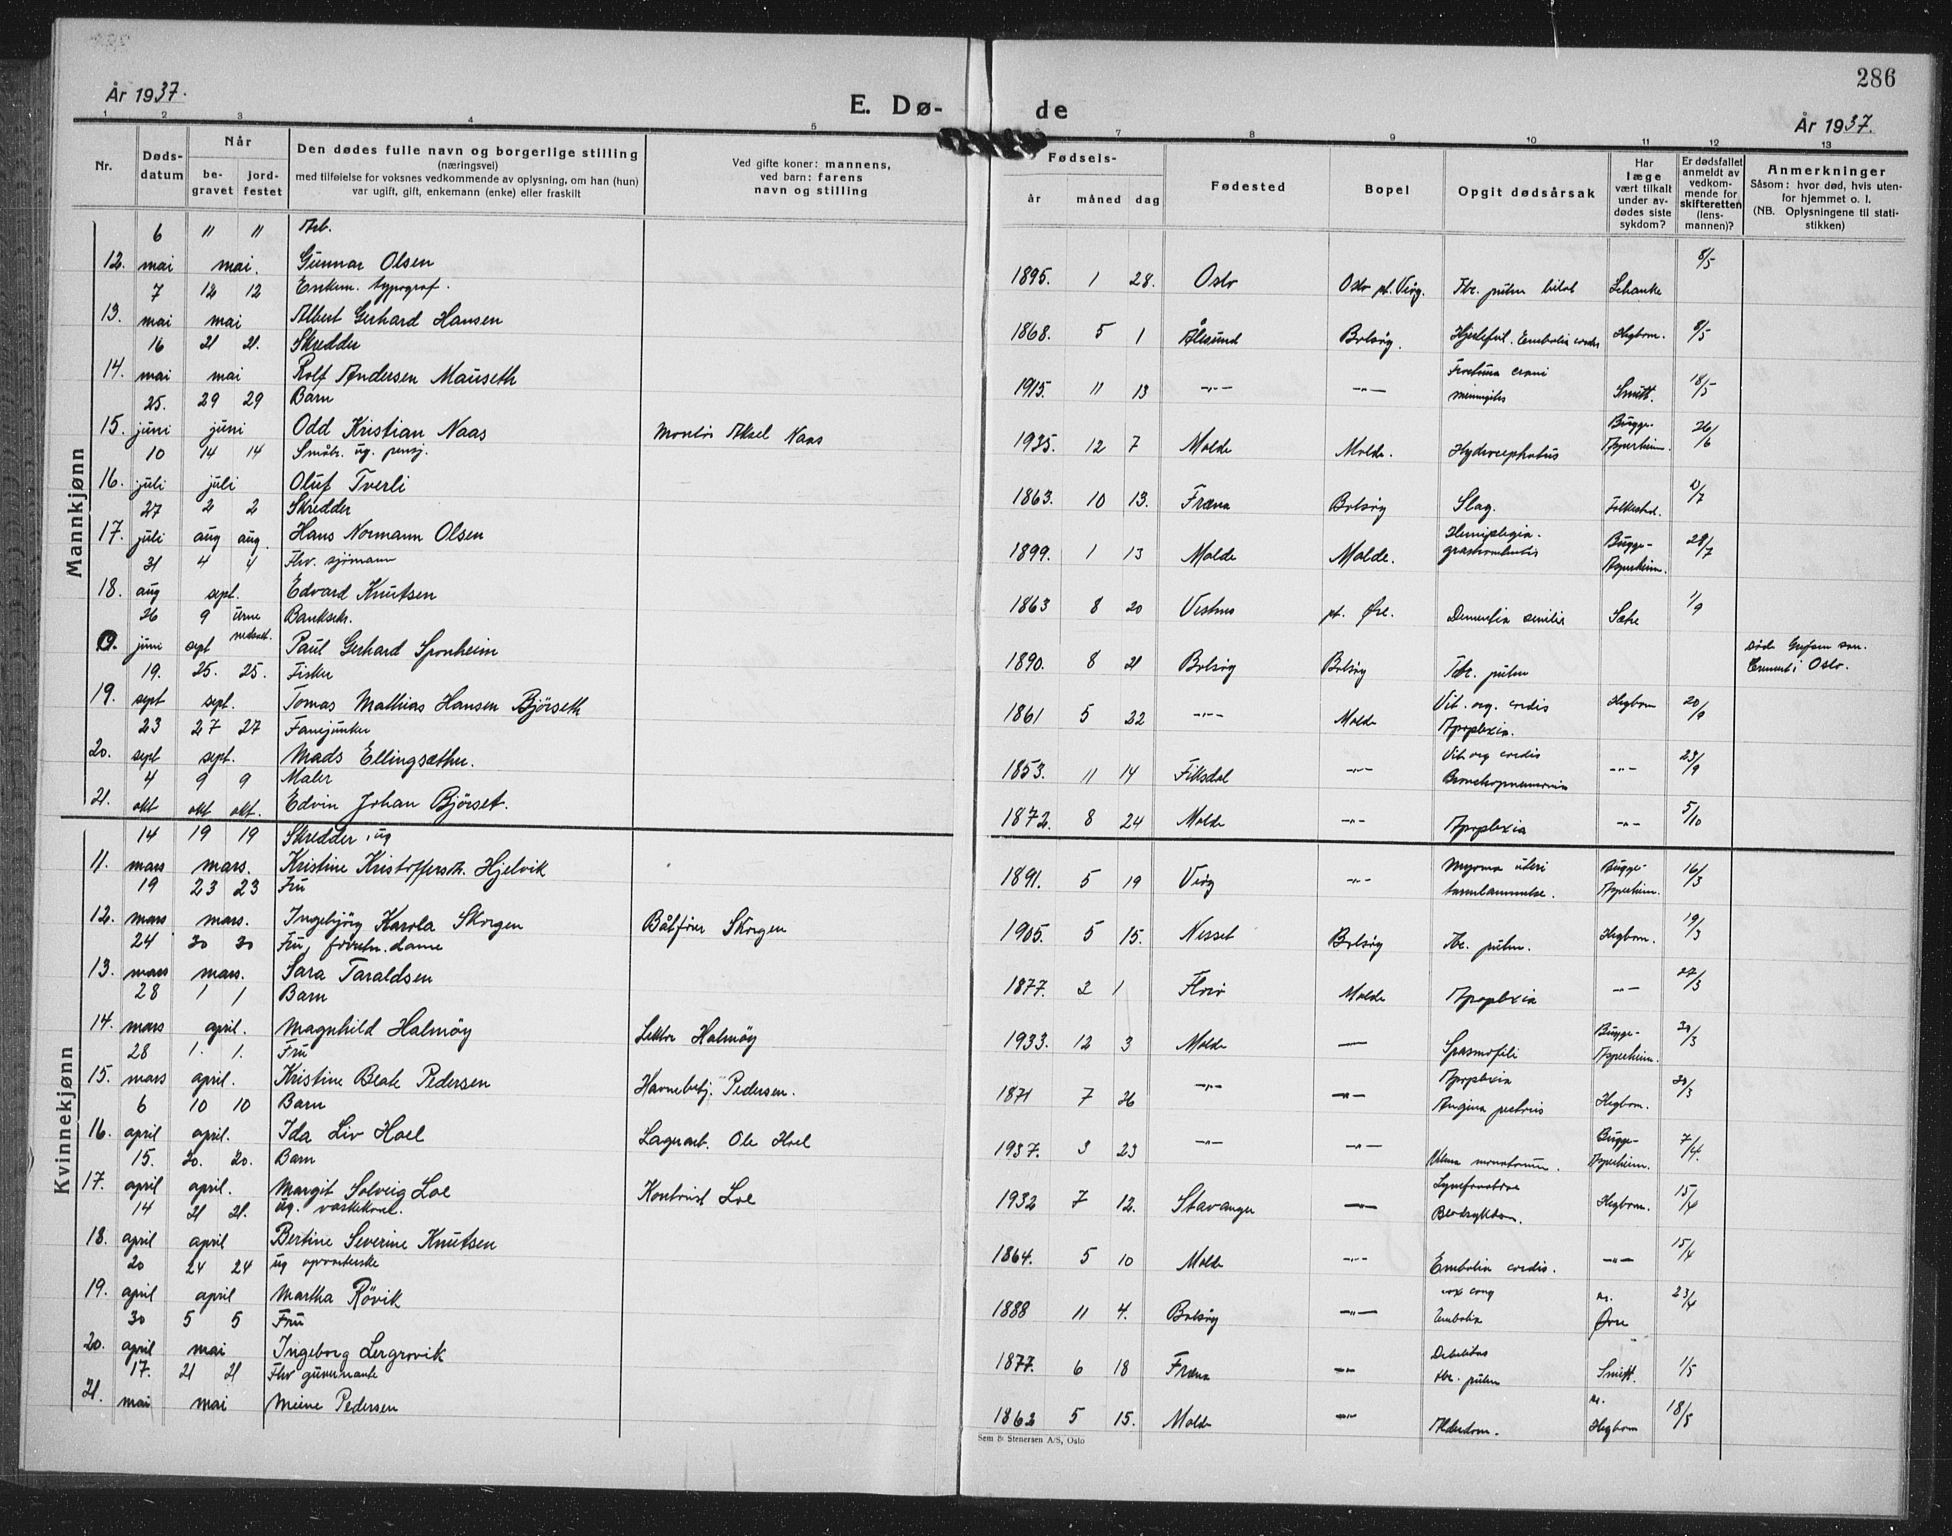 286
År 1937.
E. Dø- de
År 1937.
1 2 3 4 5 6 7 8 9 10 11 12 13
Nr.
Døds-
datum
Når
be-
gravet
jord-
festet
Den dødes fulle navn og borgerlige stilling
(næringsvei)
med tilføielse for voksnes vedkommende av oplysning, om han (hun)
var ugift, gift, enkemann (enke) eller fraskilt
Ved gifte koner: mannens,
ved barn: farens
navn og stilling
Fødsels-
år måned dag
Fødested
Bopel
Opgit dødsårsak
Har
læge
vært tilkalt
under av-
dødes siste
sykdom?
Er dødsfallet
anmeldt av
vedkom-
mende for
skifteretten
(lens-
mannen)?
Anmerkninger
Såsom: hvor død, hvis uten-
for hjemmet o. l.
(NB. Oplysningene til stati-
stikken)
Mannkjønn
6 " " Arb.
12. mai mai. Gunnar Olsen 1895. 1 28. Oslo Oslo pt. Tbc. pulm 8/5
7 12 12 Enkem. typograf.
13. mai mai Albert Gerhard Hansen 1868. 5 1 Ålesund Bolsøy. Hjertefeil. Embolia cordis Hegbom. 8/5
16 21 21. Skredder
14. mai mai Rolf Andersen Mauseth 1915. 11 13 -"- -"- Fractura crani
meningites Smitt. 18/5
25. 29 29 Barn
15. juni juni Odd Kristian Naas Montør Aksel Naas 1935. 12 7 Molde Molde. Hydrocephalus Bugge-
Asperheim. 26/6
10 14 14 Småbr. ug. pensj.
16. juli juli Oluf Tverli 1863. 10 13. Fræna Bolsøy Slag. Folkestad.
27 2 2 Skredder
17. juli aug aug. Hans Normann Olsen 1899. 1 13 Molde Molde. Hemiplegia. Bugge-
Asperheim. 28/7
31 4 4 Fhv. sjømann
18. aug sept. Edvard Knutsen 1863 8 20 Vestnes pt. Øre. Dementia senilis Sæhe 1/9
26 9 urne
nedsatt. Banksekr.
0. juni sept Paul Gerhard Sponheim 1890. 8 21 Bolsøy Bolsøy Tbc. pulm Døde Grefsen san.
Cremert i Oslo.
19. 25. 25. Fisker
19. sept sept. Tomas Mathias Hansen Bjørseth 1861 5 22 -"- Molde Vit. org. cordis
Apoplexia. Hegbom 20/9
23 27 27 Fanejunker
20. sept sept. Mads Ellingsæther. 1853. 11 14 Fiksdal -"- Vit org cordis
Bronchopneumonia -"- 23/9
4 9 9 Maler
21. okt okt okt. Edvin Johan Bjørset. 1872. 8 24 Molde -"- Apoplexia -"- 5/10
Kvinnekjønn
14 19 19 Skredder, ug
11. mars mars. Kristine Kristoffersdt. Hjelvik 1891. 5 19 Veøy -"- Myoma uteri
tarmlammelse. Bugge-
Asperheim. 16/3
19 23 23 Fru
12. mars mars. Ingebjørg Karola Skorgen Båtfører Skorgen 1905. 5 15. Nesset Bolsøy Tbc. pulm. Hegbom. 19/3
24 30 30 Fru, forretn. dame
13. mars mars. Sara Taraldsen 1877. 2 1 Florø Molde Apoplexia -"- 27/3
28 1 1 Barn
14. mars april. Magnhild Halmøy Lektor Halmøy 1933. 12 3 Molde — Spasmofili Bugge-
Asperheim. 30/3
28 1. 1. Fru
15. mars april. Kristine Beate Pedersen Havnebetj. Pedersen. 1871 7 26 -"- -"- Apoplexia
Angina pectoris Hegbom. 30/3
6 10 10 Barn
16. april april. Ida Liv Hoel Lagerarb. Ole Hoel 1937. 3 23 -"- -"- Melena neonatorum. Bugge-
Asperheim. 7/4.
15. 20. 20. Barn
17. april april. Margit Solveig Loe Kontorist Loe 1932 7 12. Stavanger -"- Blodsykdom. Hegbom. 15/4
14 21 21. ug. vaskekone.
18. april april Bertine Severine Knutsen 1864. 5 10 Molde -"- Embolia cordis. -"- 15/4
20 24 24 ug oparterske
19. april april Martha Røvik 1888 11 4. Bolsøy -"- vox cong
Embolia Øvre 23/4
30 5 5 Fru
20. april mai Ingeborg Lergrovik 1877. 6 18 Fræna -"- Debilitas
tbc. pulm Smitt. 1/5
17. 21 21 Fhv guvernante
21. mai mai Meine Pedersen 1862 5 15. Molde -"- Alderdom. Hegbom 18/5
Sem & Stenersen A/S, Oslo